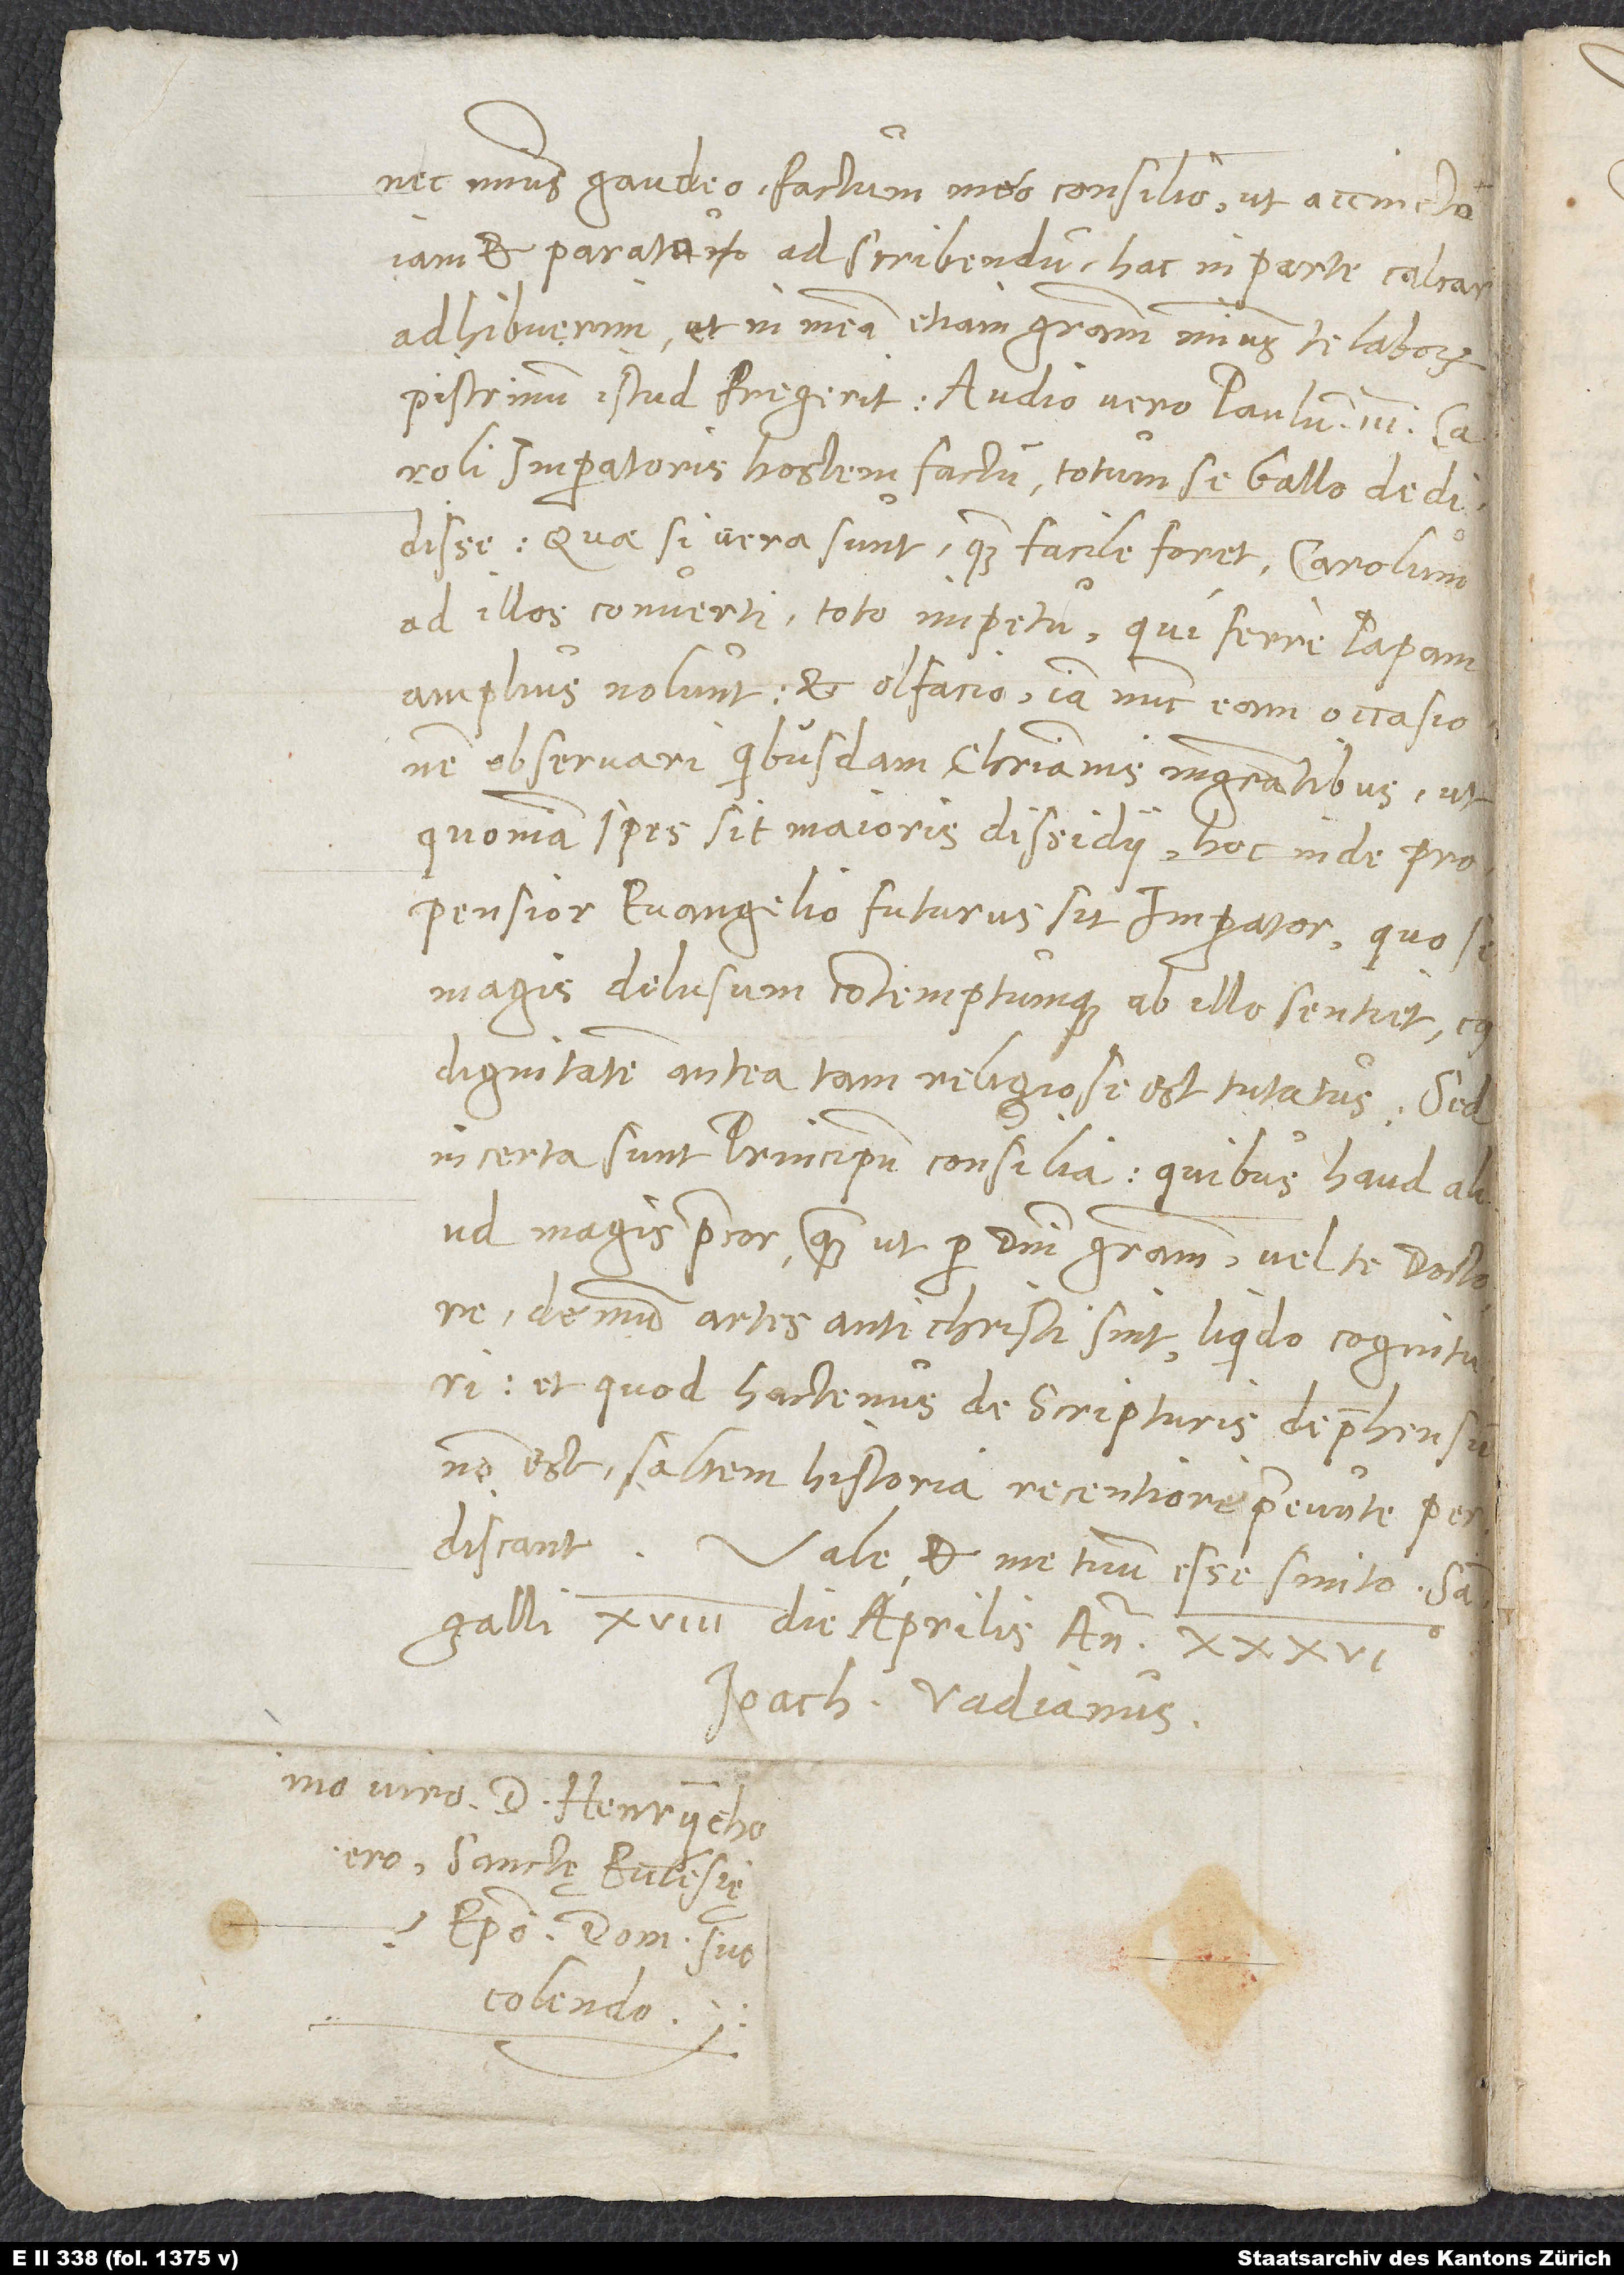 nec minus gaudeo, factum meo consilio, ut accincto
iam & parato ad scribendũ, hac in parte calcar
adhibuerim, ut in meã etiam gram̃ minus te laborũ
pistrinum istud fregerit: Audio uero Paulũ .III. Ca-
roli Imperatoris hostem factũ, totum se Gallo dedi-
disse: Quae si uera sunt, quam facile foret, Carolum
ad illos conuerti, toto impetu, qui ferre Papam
amplius nolunt: & olfacio, iã nunc eam occasio-
nẽ obseruari quibusdam Chrianis migrantibus, ut
quoniã spes sit maioris dissidij, hoc inde pro-
pensior Euangelio futurus sit Imperator, quo se
magis delusum cõtemptumque ab illo sentiet, cuius
dignitatẽ antea tam religiose est tutatus. Sed
incerta sunt Principũ consilia: quibus haud ali-
ud magis precor, quam ut per Dni gram̃, uel te docto-
re, demũ artes antichristi sint, liquido cognitu-
ri: et quod hactenus de Scripturis deprehensũ
nõ est, saltem historia recentiore preeunte per-
discant. Vale, & me tuũ esse sinito. Sã-
galli XVIII die Aprilis An. XXXVI°
Joach. Vadianus.
mo uiro. D. Henrycho
ero, Sanctę Ecclesię
Epõ. Dom. suo
colendo.
E II 338 (fol. 1375 v)
Staatsarchiv des Kantons Zürich